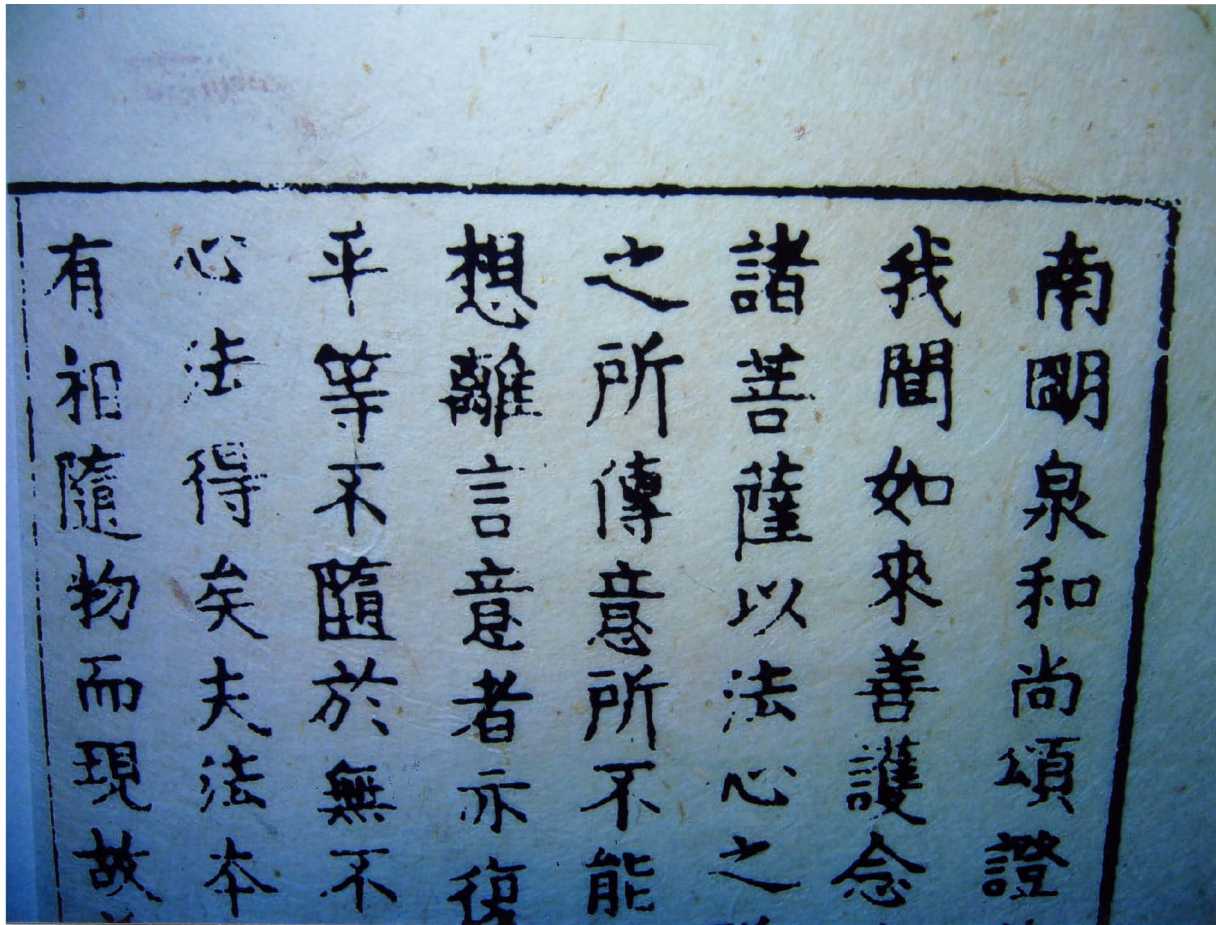 南明泉和尚頌證
我聞如來善護念
諸菩薩以法心之
之所傳意所不能
想離言意者亦復
平等不不隨於無不
心法得矣夫法本
有相隨物而現故